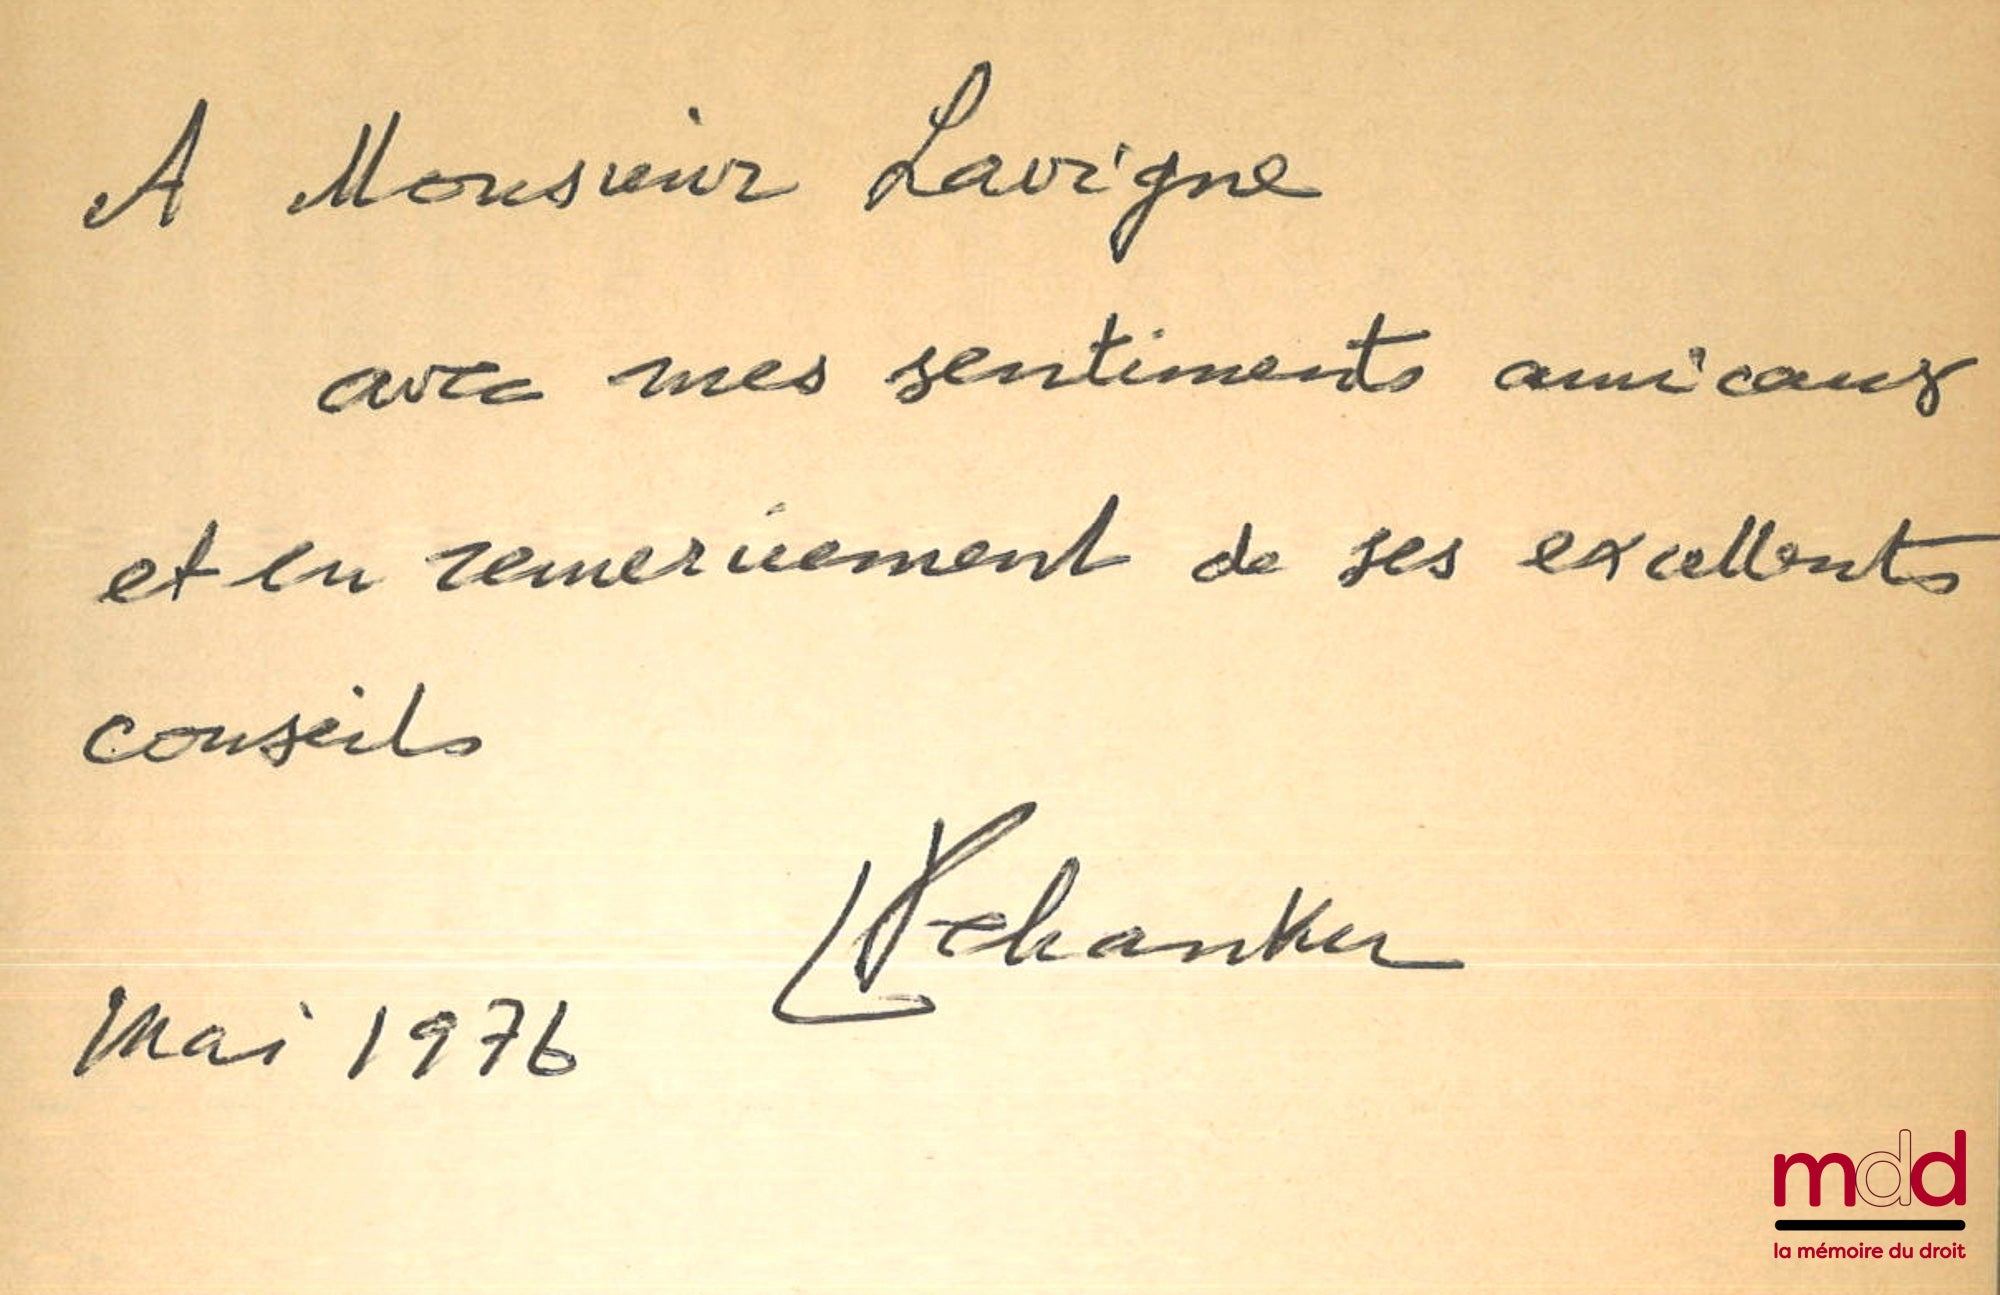 A Monsieur Lavigne
avec mes sentiments amicaux
et en remerciement de ses excellents
conseils
Mai 1976
mdd
la mémoire du droit